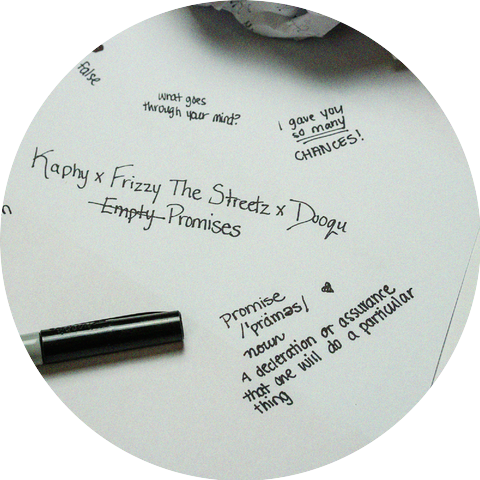 false
what goes
through your mind?
I gave you
so many
CHANCES!
Kaphy x Frizzy The Streetz x Dooqu
Empty Promises
Promise
/'präməs/
noun
A decleration or assurance
that one will do a particular
thing